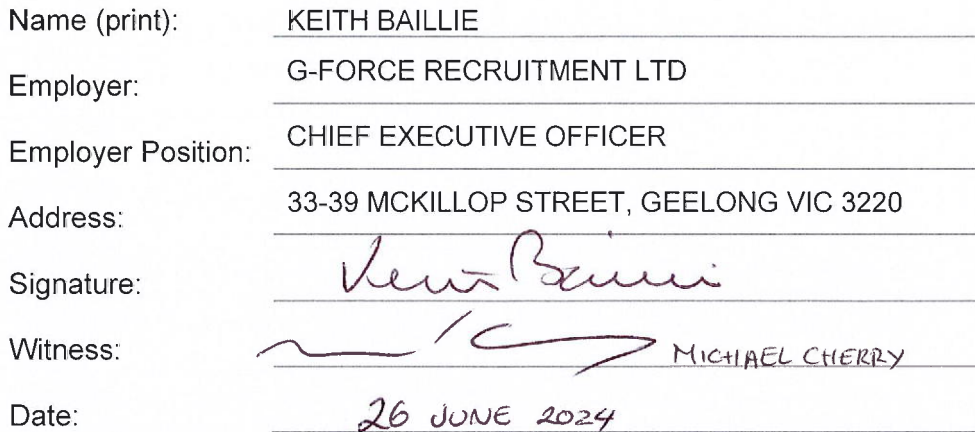 Name (print): KEITH BAILLIE
Employer: G-FORCE RECRUITMENT LTD
Employer Position: CHIEF EXECUTIVE OFFICER
Address: 33-39 MCKILLOP STREET, GEELONG VIC 3220
Signature: Keith Baillie
Witness: MICHAEL CHERRY
Date: 26 JUNE 2024